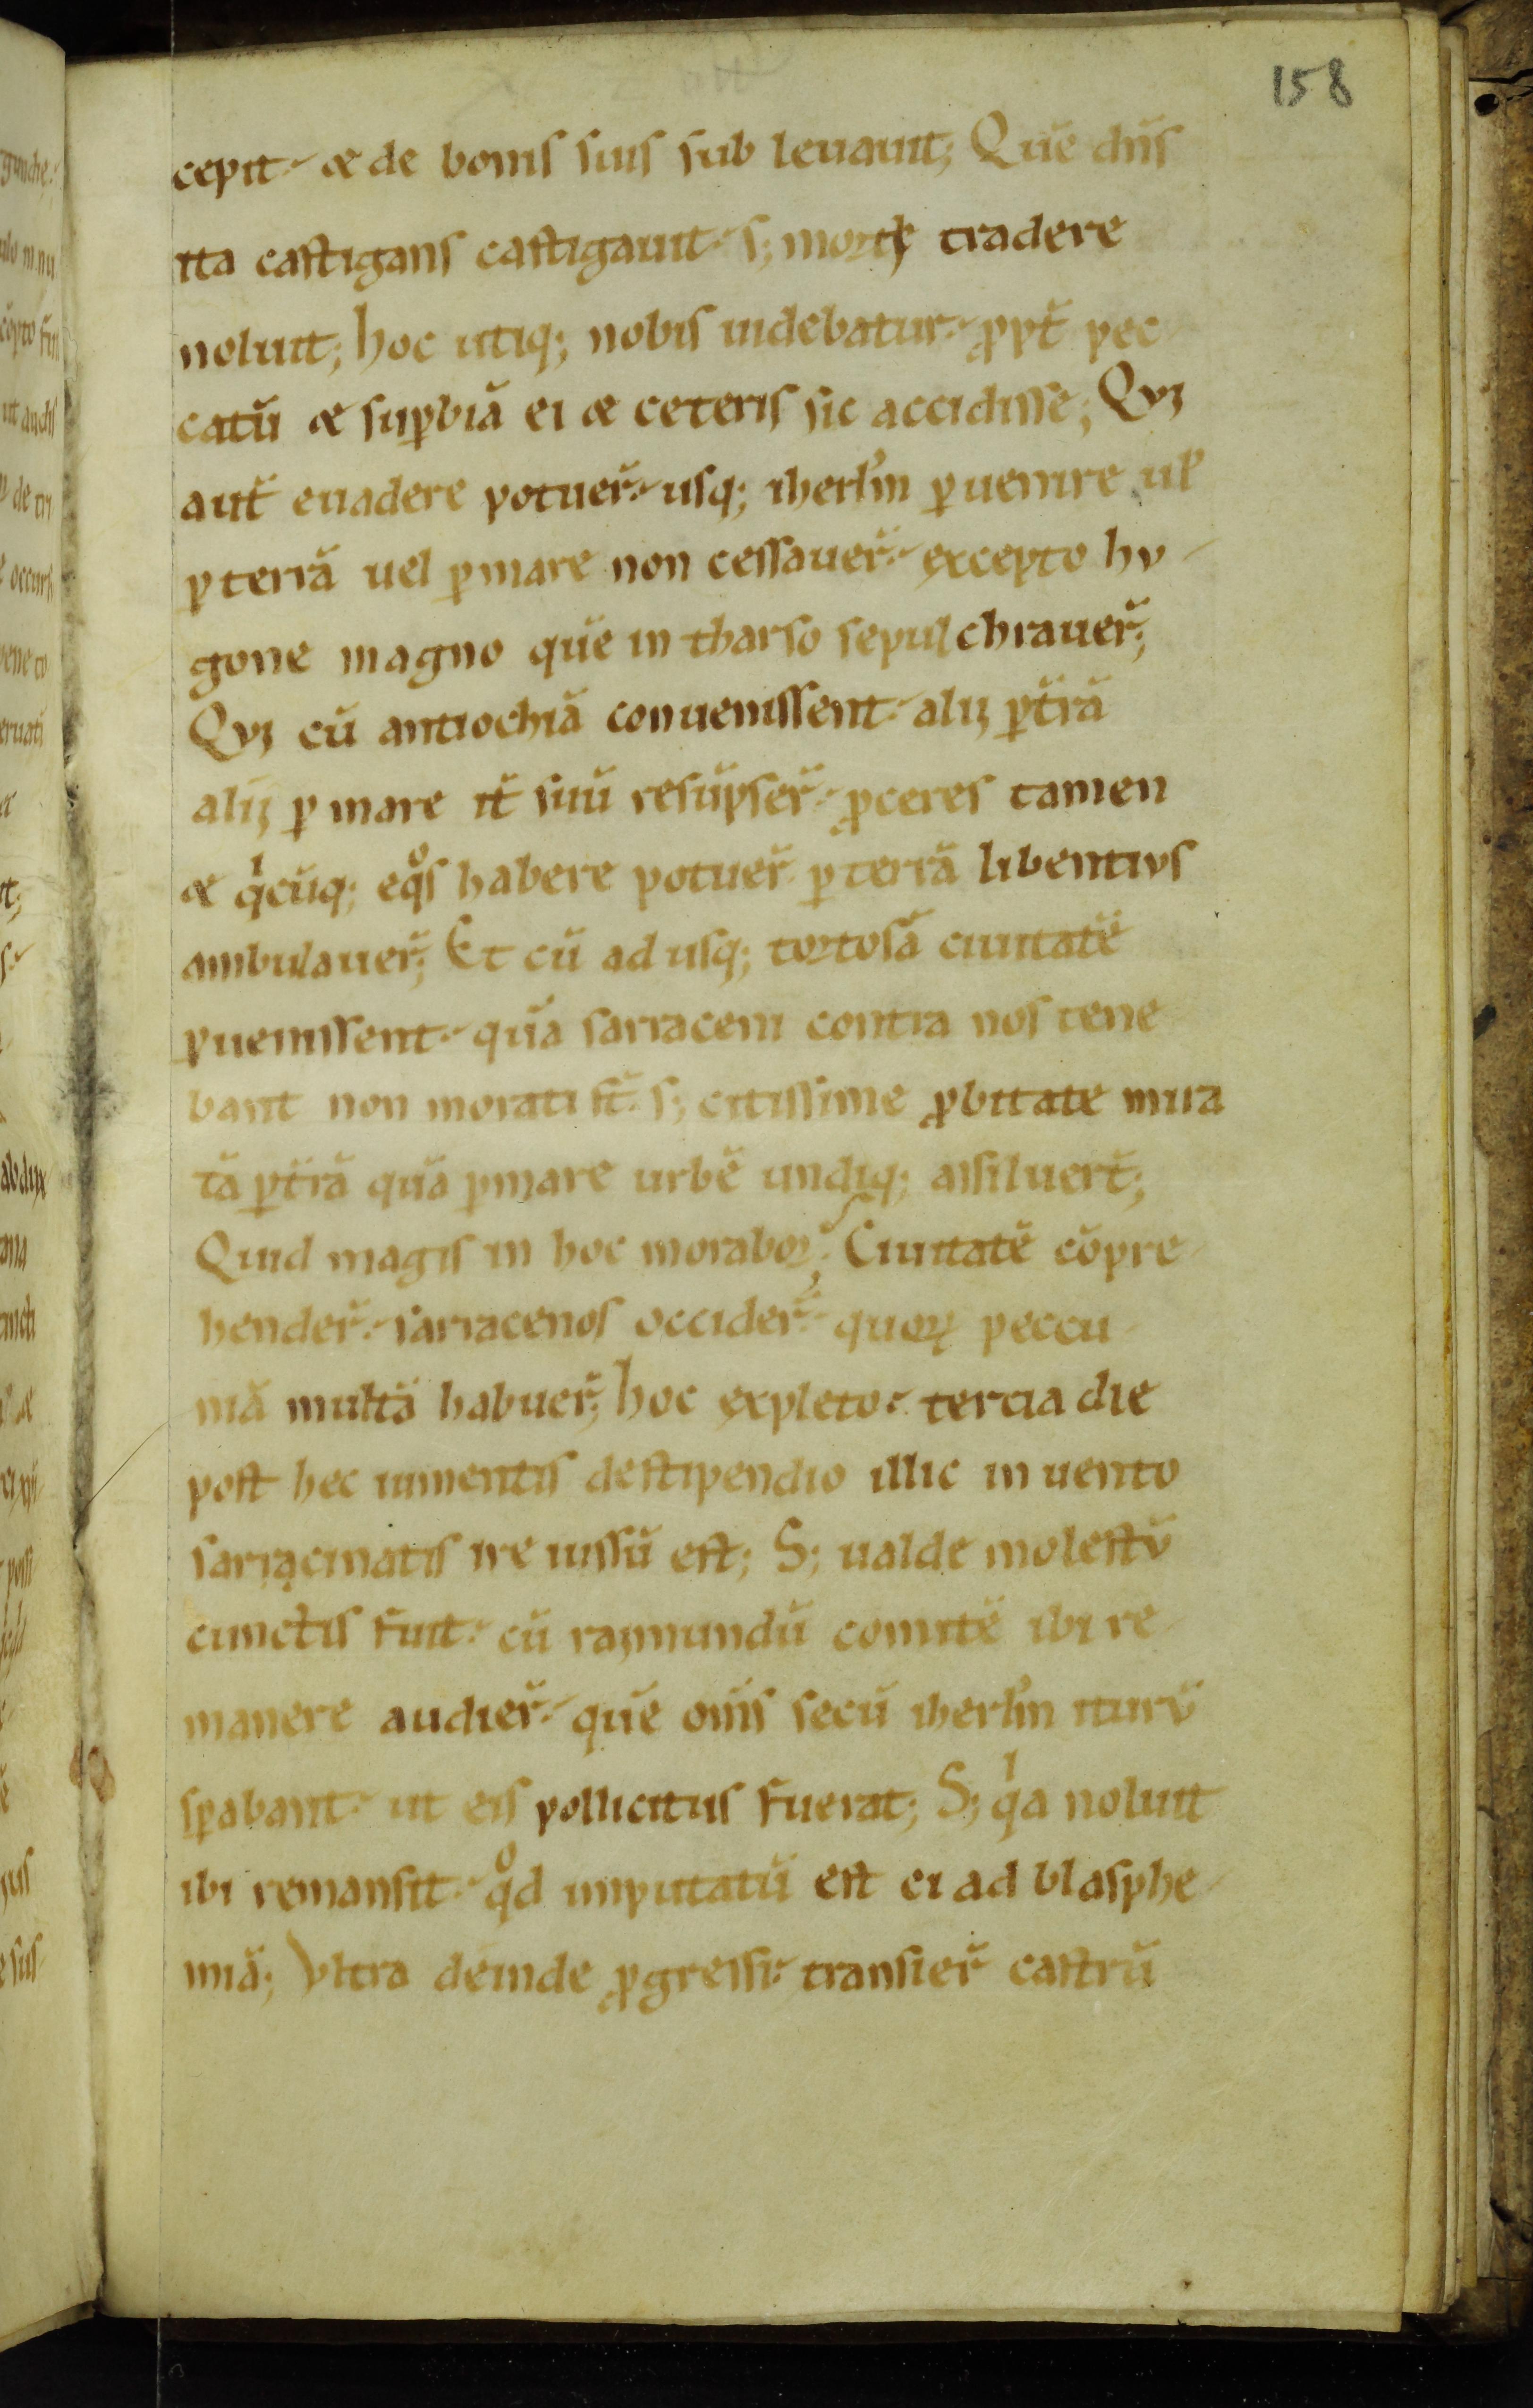 158
cepit et de bonis suis sub leuauit; Quē dn̄s
ita castigans castigauit s; mortę tradere
noluit; hoc utiq; nobis uidebatur ꝓpt̄ pec
catū et suꝑbiā ei et ceteris sic accidisse; Qvi
aut̄ euadere potuer̄ usq; iherłm ꝑuenire uł
ꝑ terrā uel ꝑ mare non cessauer̄ excepto hv-
gone magno quē in tharso sepulchrauer̄;
Qvi cū antiochiā conuenissent alii ꝑ t̄rā
alii ꝑ mare it̄ suū resūpser̄ ꝓceres tamen
et qͥcūq; eqͦs habere potuer̄ ꝑ terrā libentivs
ambulauer̄; Et cū ad usq; tortosā ciuitatē
ꝑuenissent quā sarraceni contra nos tene
bant non morati st̄ s; citissime ꝓbitate mira
tā ꝑ t̄rā quā ꝑ mare urbē undiq; assiluer̄t;
Quid magis in hoc morabor; Ciuitatē cōpre-
hender̄ sarracenos occider̄ quoꝝ peccu-
niā multā habuer̄; hoc expleto tercia die
post hec iumentis de stipendio illic inuento
sarracinatis ire iussū est; S; ualde molestv̄
cunctis fuit cū raymundū comitē ibi re-
manere audier̄ quē om̄s secū iherłm iturv̄
sꝑabant ut eis pollicitus fuerat; S; qͥa noluit
ibi remansit qͦd imputatū est ei ad blasphe-
miā; Vltra deinde ꝓgressi transier̄ castrū